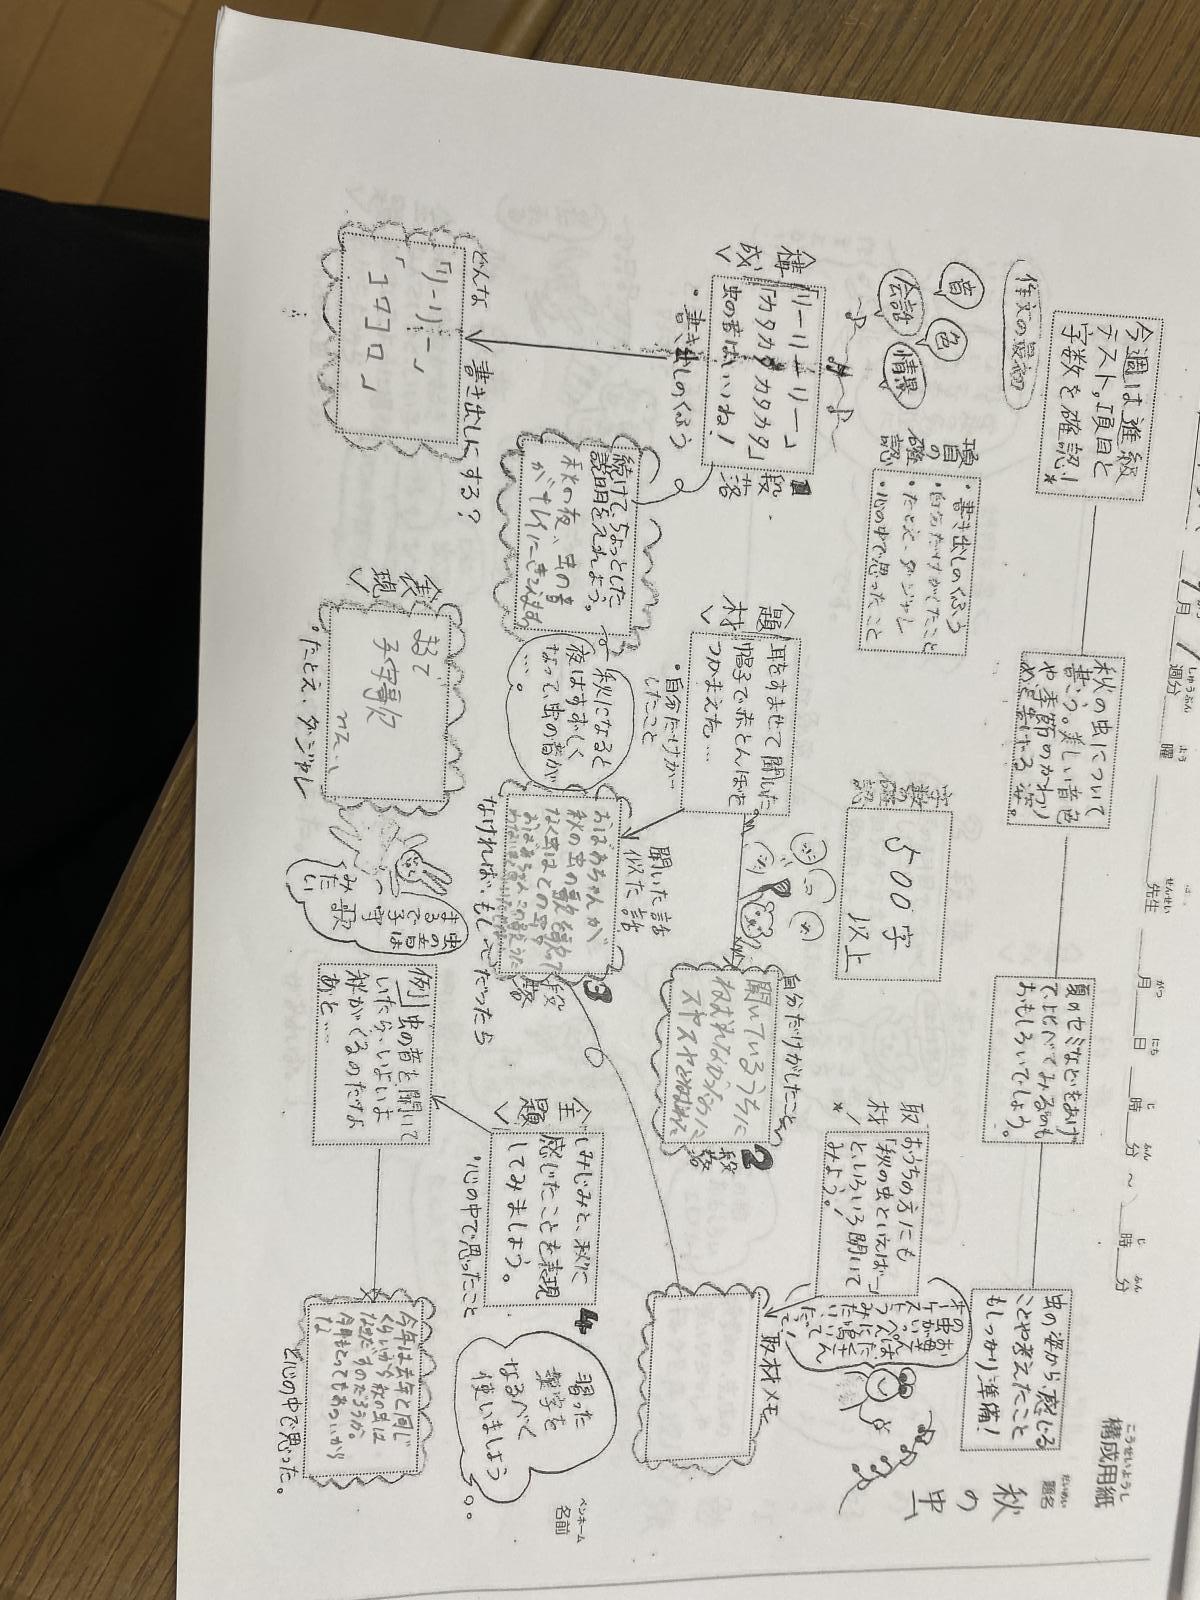 構成用紙
こうせいようし
題名
だいめい
秋の虫
名前
ペンネーム
月
週分
しゅうぶん
曜
よう
先生
せんせい
月
がつ
日
にち
時
じ
分
ふん
～
時
じ
分
ふん
今週は進級
テスト。項目と
字数を確認！*
秋の虫について
書こう。美しい音色
や、季節のかわり
めを書ける姿。
夏のセミなどをあげ
て、比べてみるのも
おもしろいでしょう。
虫の姿から感じる
ことや考えたこと
もしっかり準備！
作文の最初
音
色
会話
情景
項目の確認
・書き出しのくふう
・自分だけがしたこと
・たとえ、ダジャレ
・心の中で思ったこと
字数の確認
500字
以上
取材
おうちの方にも
「秋の虫といえば…」
といろいろ聞いて
みよう。
取材メモ
〈構成〉
「リーリーリーリー」
「カタカタカタカタ」
虫の音はいいね！
・書き出しのくふう
1段落
どんな書き出しにする？
「リーリー」
「コロコロ」
続けてちょっとした
説明を入れよう。
秋の夜、虫の音
がキレイにきこえます
秋になると
夜はすずしく
なって、虫の音が
…。
〈題材〉
耳をすませて聞いた。
帽子で赤とんぼを
つかまえた…
・自分だけが
したこと
自分だけがしたこと
聞いているうちに
2段落
聞いた話
似た話
おばあちゃんが
3段落
なければ、もし〜だったら
〈表現〉
・たとえ、ダジャレ
子守歌
虫の音は
まるで子守
歌みたい
例
虫の音を聞いて
いたら、いよいよ
秋がくるのだなあ
と…
〈主題〉
しみじみと、秋に
感じたことを表現
してみましょう。
・心の中で思ったこと
4
今年は去年と同じ
くらいから秋の虫は
なきだすのだろうか。
今年もとってもあついから
な
と心の中で思った。
習った
漢字を
なるべく
使いましよう